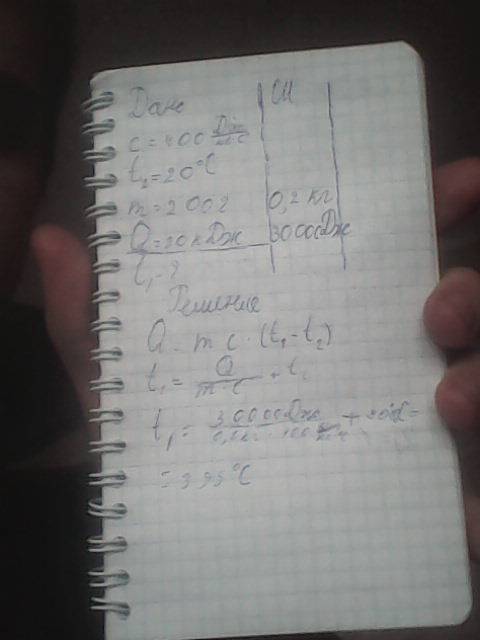 Дано
СИ
c = 400 Дж/кг°C
t₂ = 20°C
m = 200г 0,2 кг
Q = 30 кДж 30000Дж
t₁ - ?
Решение
Q = m c · (t₁ - t₂)
t₁ = Q/m·c + t₂
t₁ = 30000Дж / 0,2кг · 400 + 20°C =
= 395°C